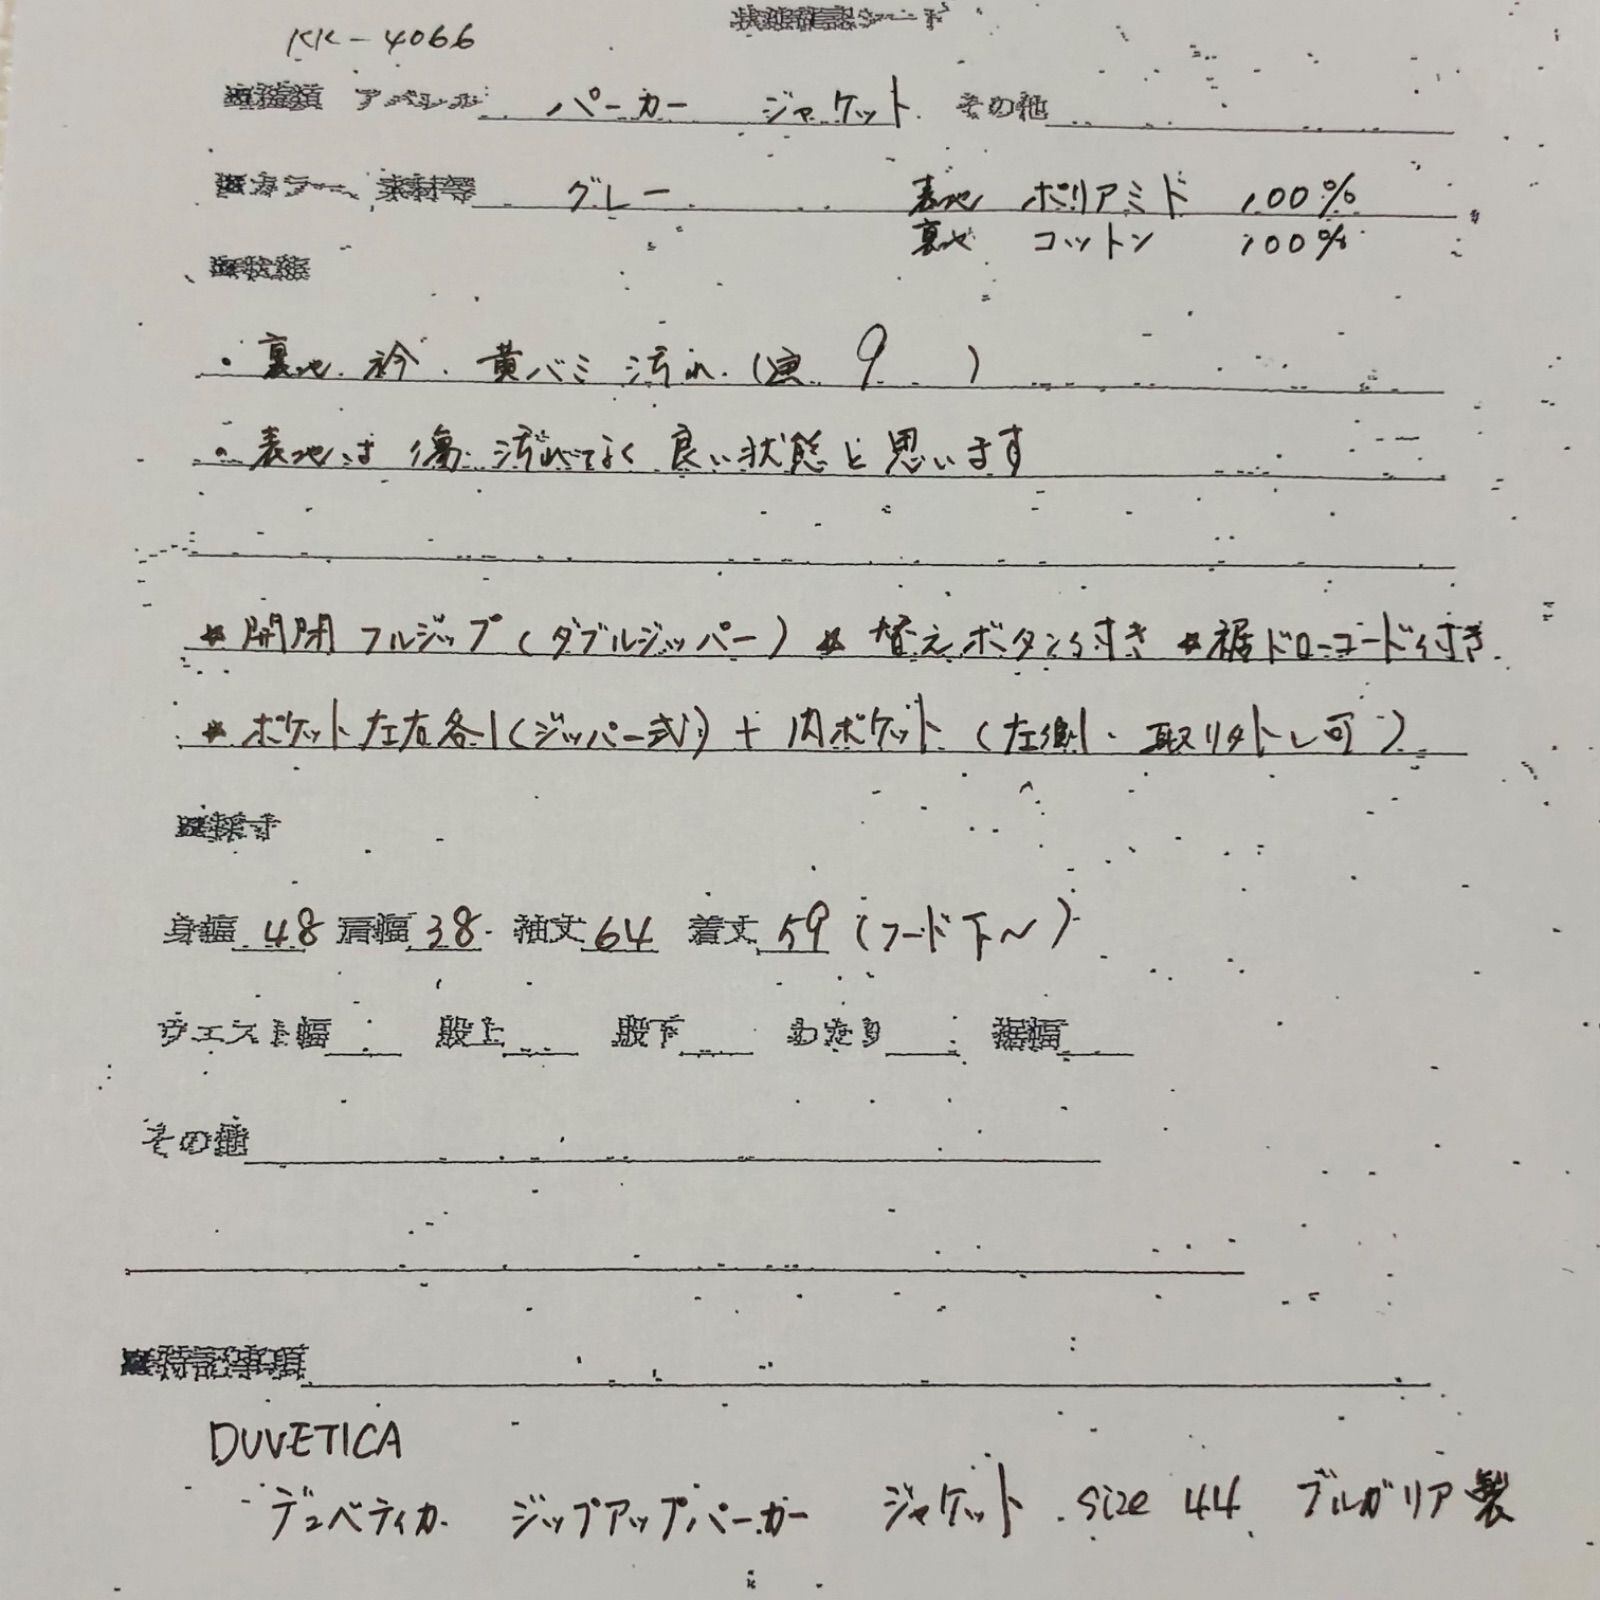 KK-4066
状態確認シート
■種類 アパレル パーカー ジャケット その他
■カラー、素材等 グレー 表地 ポリアミド 100%
裏地 コットン 100%
■状態
・裏地 衿 黄バミ 汚れ (画 9 )
・表地は 傷 汚れなく 良い状態と思います
*開閉フルジップ(ダブルジッパー) *替えボタン付き *裾ドローコード付き
*ポケット左右各1(ジッパー式)+内ポケット(左側1・取り外し可)
■採寸
身幅 48 肩幅 38 袖丈 64 着丈 59 (フード下〜)
ウエスト幅 股上 股下 わたり 裾幅
その他
■特記事項
DUVETICA
デュベティカ ジップアップパーカー ジャケット size 44 ブルガリア製